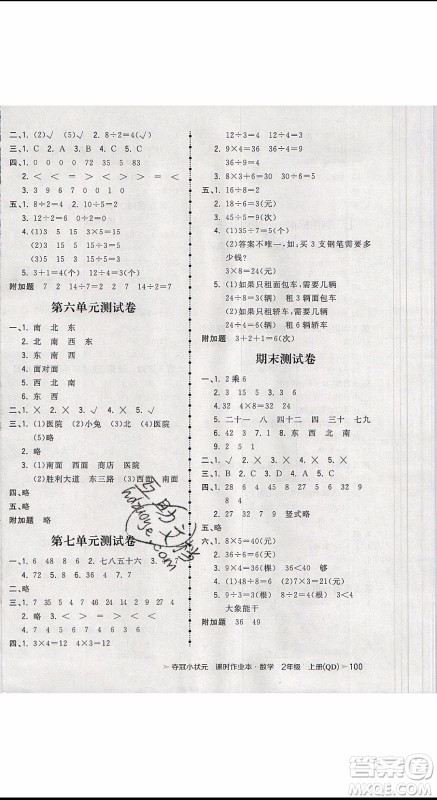 二、1. (2)√ (5)√ 2. 8÷2=4(√)
三、1. C 2. A 3. C 4. B 5. C
四、1. 0 0 0 0 72 35 83
2. < < = > = < > < >
3. 3 9 6 7 0 1 0
五、1. 8÷2=4 2. 10÷2=5
3. 12÷2=6
4. (1)3 5 15 3×5=15
(2)15 3 5 15÷3=5
5. 3+1=4(个) 12÷4=3(个)
附加题 7 2 14÷7=2 14÷2=7
第六单元测试卷
一、1. 南 北 东
2. 西 南 北 东
3. 东 南 西
4. 面对面
5. 西 北 南
6. 东 西 南 北
二、1. × 2. × 3. √ 4. √
三、1. (1)医院 (2)小兔 (3)医院
(5)√
2. (1)南面 西面 商店 医院
(2)胜利大道 东三路 (3)西面 南面
四、略
五、略
附加题 略
第七单元测试卷
一、1. 6 48 8 2. 七八五十六 3. 4
4. < > < = > =
二、1. × 2. × 3. √ 4. √
三、1. C 2. C 3. C 4. B 5. C
四、1. 7 24 7 28 54 9 27 9 10
2. 略
12÷3=4 12÷4=3
2. 9×4=36 36÷4=9(根)
36÷9=4
3. 8×3+6=30 36÷6=6
五、1. 16÷8=2
2. 24÷8=3(元)
3. 45÷5=9(次)
4. (1)35÷7=5(个)
(2)答案不唯一,如:买 3 支钢笔需要多
少钱?
3×8=24(元)
5. (1)如果只租面包车,需要几辆
24÷8=3(辆) 租 3 辆面包车
(2)如果只租轿车,需要几辆
24÷4=6(辆) 租 6 辆轿车
附加题 3+2+1=6(次)
期末测试卷
一、1. 2乘6
2. 3 15 5 3. 6 3
4. 32 4×8=24 36
5. 二十一 八 四十二 四 三十 七 九
6. 42 9 7. 东 西 南
二、1. √ 2. × 3. × 4. √
三、1. C 2. A 3. A 4. B 5. B
四、1. 28 9 64 8 25 4 3 4 6
2. 48 6 27 9 竖式略
五、略
六、1. 8×5=40(元)
2. 36÷6=6(元)
3. 4×9=36(棵) 36>35 够
4. 24÷3=8(根) 8>2
大象能干
附加题 36 49
夺冠小状元 课时作业本·数学 2年级 上册(QD) 100
答案圈
MXQE.COM
互助文档
hdzuoye.com